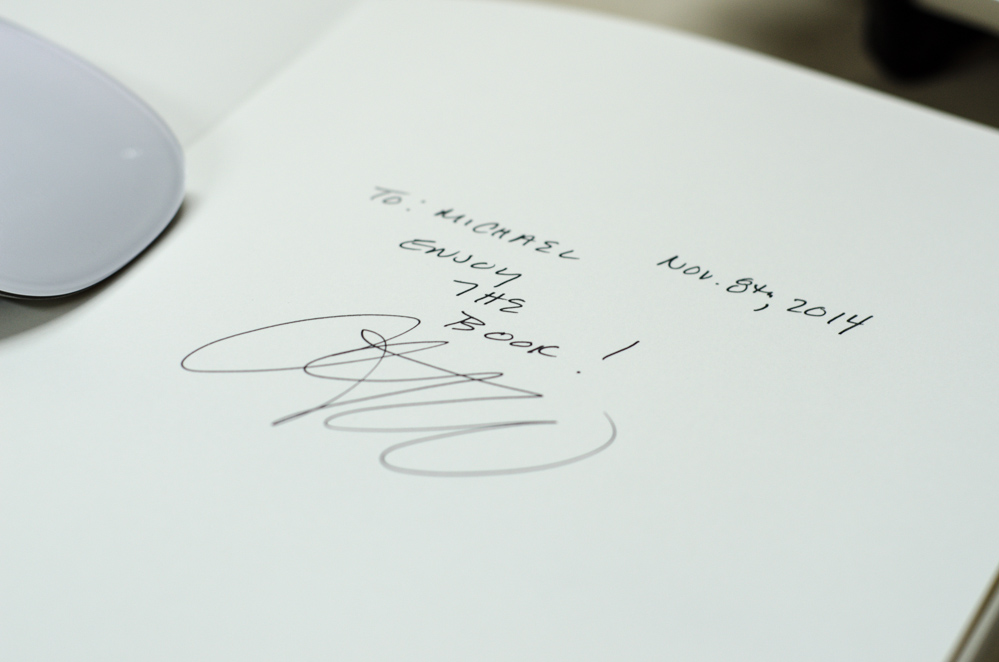 To: MICHAEL Nov. 8th, 2014
ENJOY
THE
BOOK!